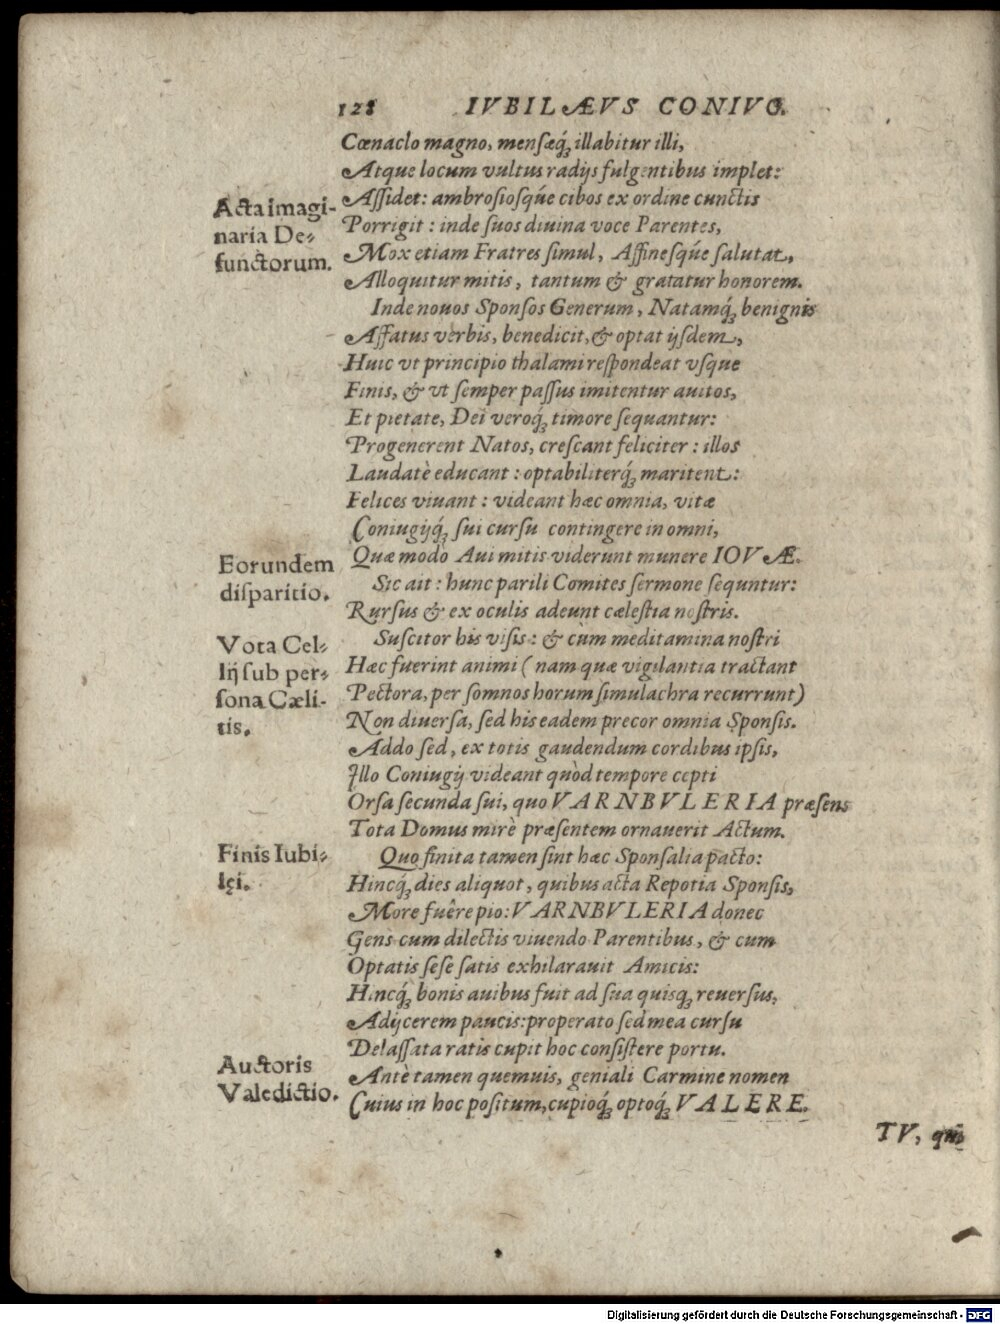 128 IVBILÆVS CONIVG.
Cœnaclo magno, mensæq́; illabitur illi,
Atque locum vultus radijs fulgentibus implet:
Acta imagi-
naria De-
functorum.
Assidet: ambrosiosq́ue cibos ex ordine cunctis
Porrigit: inde suos diuina voce Parentes,
Mox etiam Fratres simul, Affinesq́ue salutat,
Alloquitur mitis, tantum & gratatur honorem.
Inde nouos Sponsos Generum, Natamq́; benignis
Affatus verbis, benedicit, & optat ijsdem,
Huic vt principio thalami respondeat vsque
Finis, & vt semper passus imitentur auitos,
Et pietate, Dei veroq́; timore sequantur:
Progenerent Natos, crescant feliciter: illos
Laudatè educant: optabiliterq́; maritent:
Felices viuant: videant hæc omnia, vitæ
Coniugijq́; sui cursu contingere in omni,
Quæ modò Aui mitis viderunt munere IOVÆ.
Eorundem
disparitio.
Sic ait: hunc parili Comites sermone sequntur:
Rursus & ex oculis adeunt cælestia nostris.
Vota Cel-
lij sub per-
sona Cæli-
tis.
Suscitor his visis: & cùm meditamina nostri
Hæc fuerint animi (nam quæ vigilantia tractant
Pectora, per somnos horum simulachra recurrunt)
Non diuersa, sed his eadem precor omnia Sponsis.
Addo sed, ex totis gaudendum cordibus ipsis,
Illo Coniugij videant quòd tempore cepti
Orsa secunda sui, quo VARNBVLERIA præsens
Tota Domus mirè præsentem ornauerit Actum.
Finis Iubi-
lęi.
Quo finita tamen sint hæc Sponsalia pacto:
Hincq́; dies aliquot, quibus acta Repotia Sponsis,
More fuêre pio: VARNBVLERIA donec
Gens cum dilectis viuendo Parentibus, & cum
Optatis sese satis exhilarauit Amicis:
Hincq́; bonis auibus fuit ad sua quisq; reuersus,
Adijcerem paucis: properato sed mea cursu
Delassata ratis cupit hoc consistere portu.
Auctoris
Valedictio.
Antè tamen quemuis, geniali Carmine nomen
Cuius in hoc positum, cupioq́; optoq́; VALERE.
TV, qui
Digitalisierung gefördert durch die Deutsche Forschungsgemeinschaft - DFG